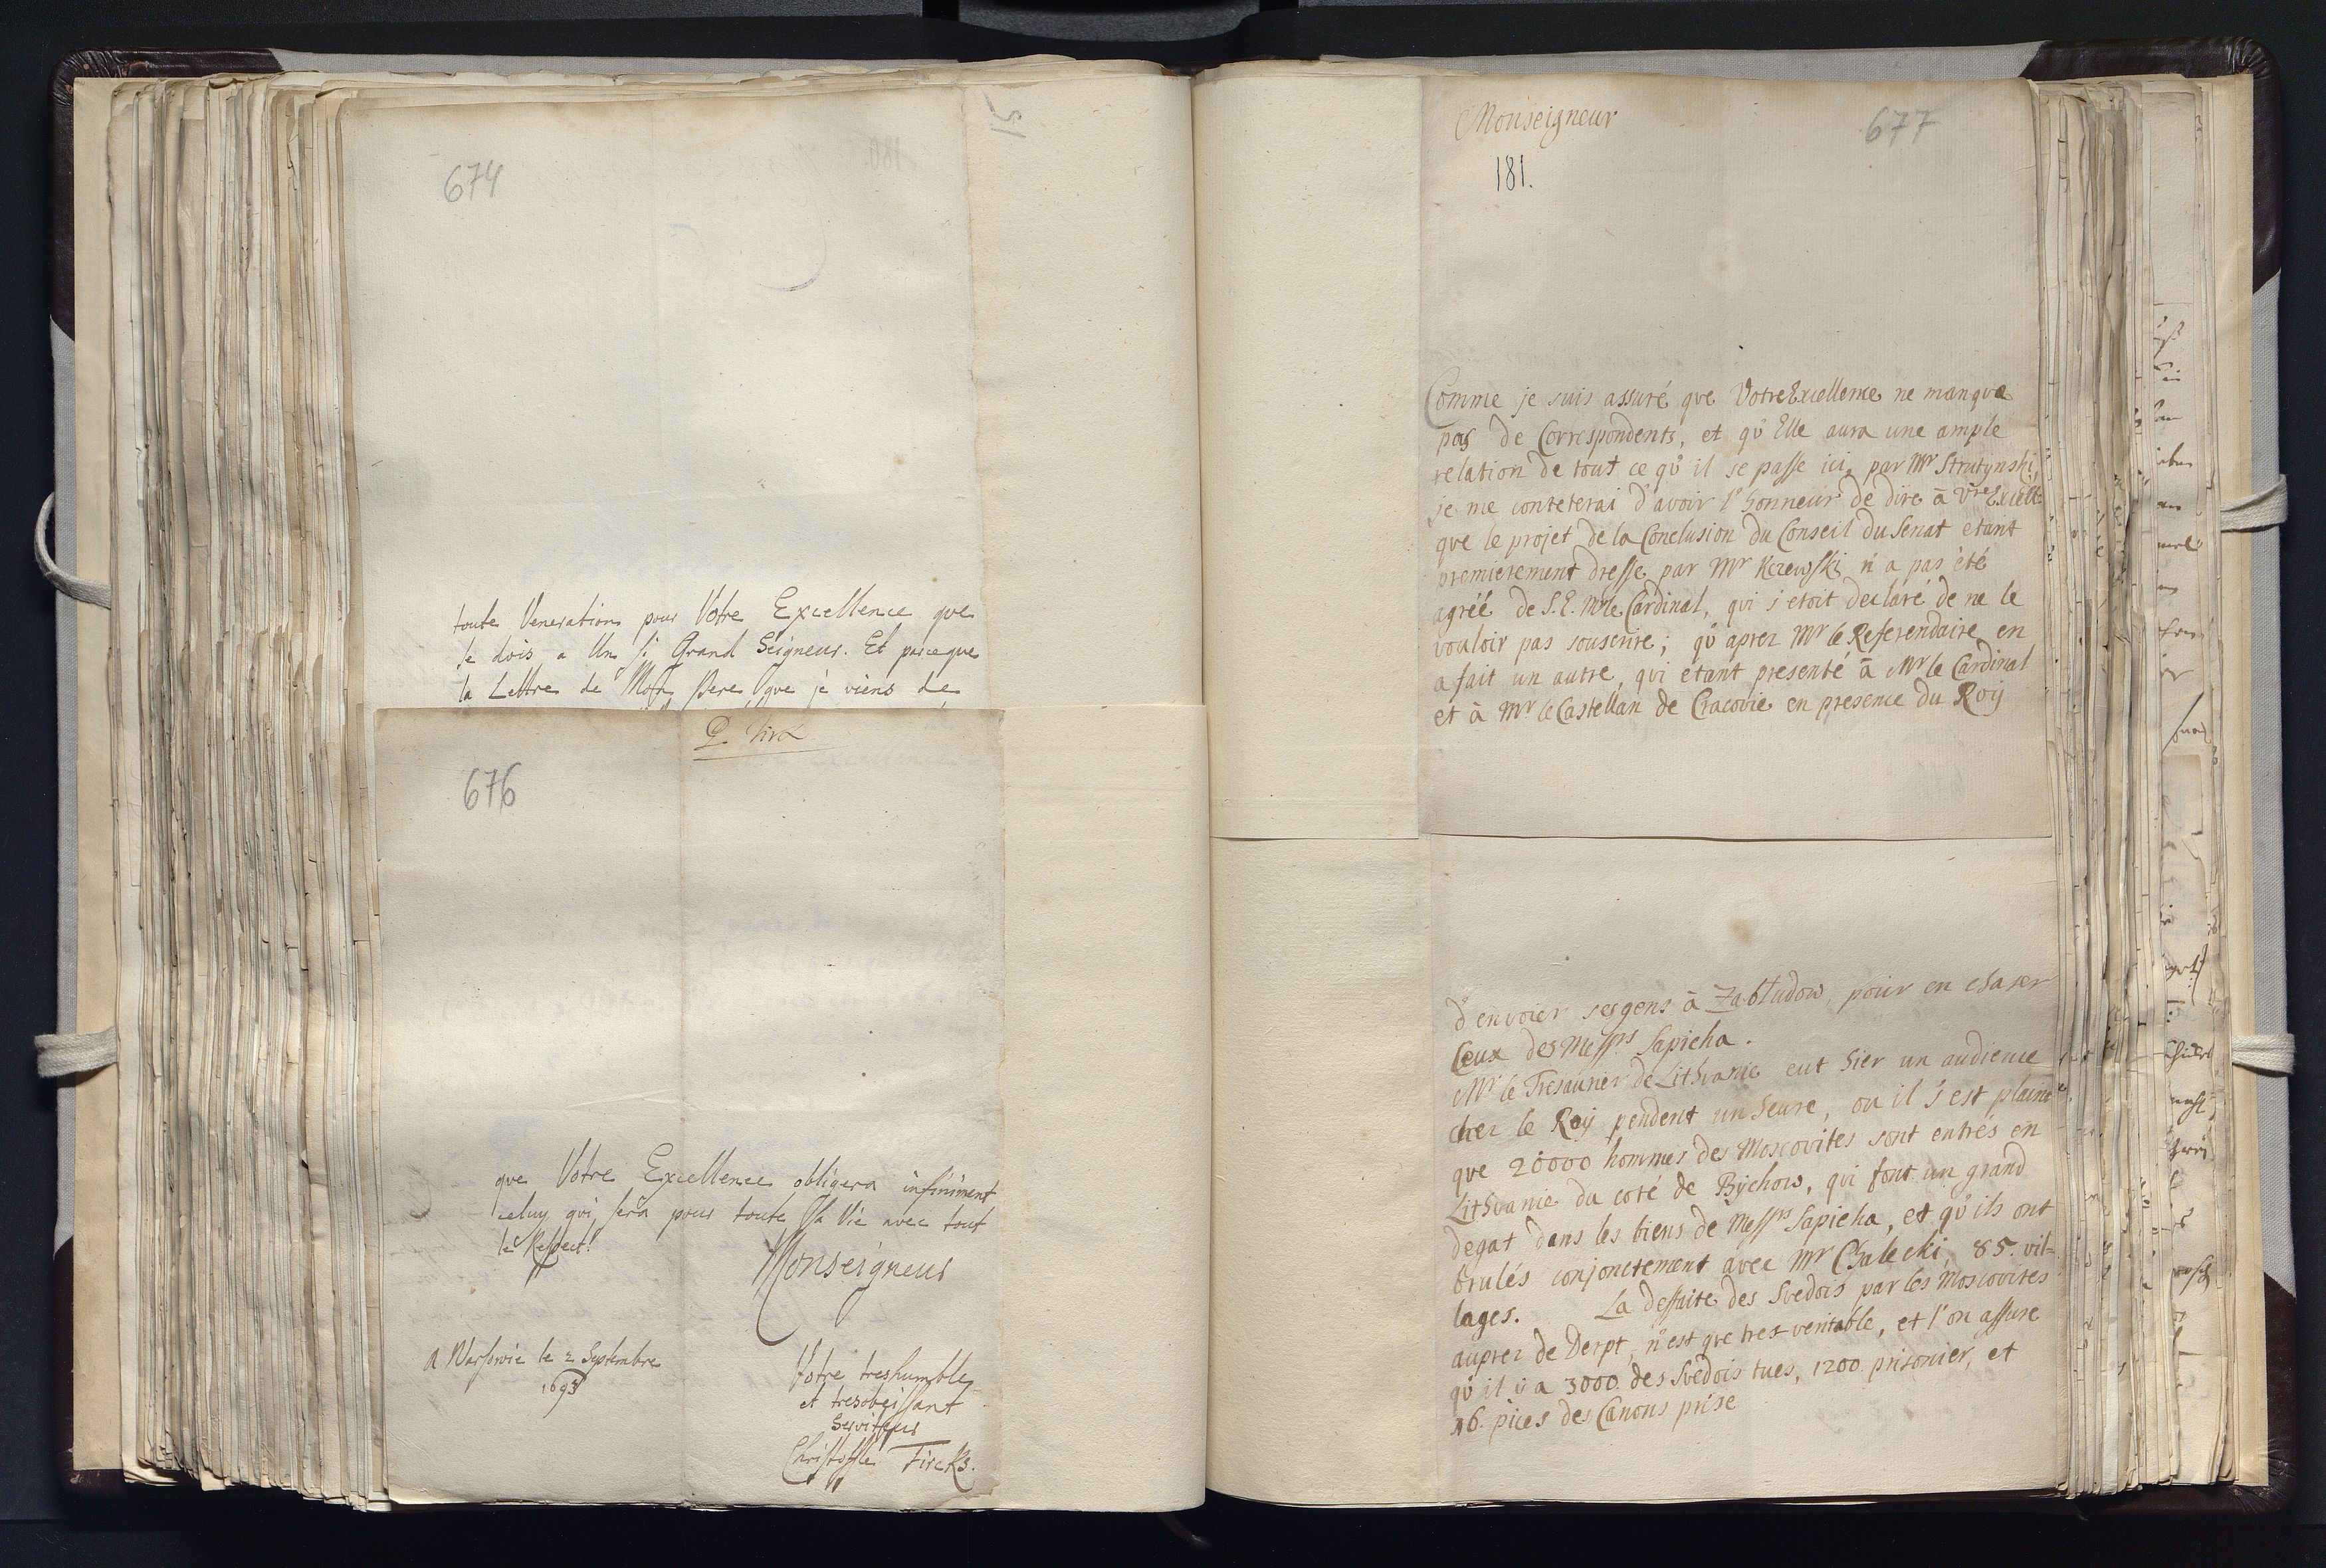 674
toute Veneration pour Votre Excellence que
je dois a Un si Grand Seigneur. Et parceque
la Lettre de Mon Pere que je viens de
P. Firx
676
que Votre Excellence obligera infiniment
celuy qui sera pour toute sa Vie avec tout
le Respect.
Monseigneur
A Warsovie le 2 Septembre
1693
Votre treshumble
et tresobeissant
Serviteur
Christoffle Fircks.
Monseigneur
677
181.
Comme je suis assuré que Votre Excellence ne manque
pas de Correspondents, et qu'Elle aura une ample
relation de tout ce qu'il se passe ici, par Mr Strutynski,
je me conteterai d'avoir l'honneur de dire à Vre Excell:
que le projet de la Conclusion du Conseil du Senat etant
premierement dresse par Mr Kczewski n'a pas été
agréé de S.E. Mr le Cardinal, qui s'etoit declaré de ne le
vouloir pas souscrire; qu'aprez Mr le Referendaire en
a fait un autre, qui étant presenté à Mr le Cardinal
et à Mr le Castellan de Cracovie en presence du Roÿ
d'envoier ses gens à Zabludow, pour en chaser
Ceux des Messrs Sapieha.
Mr le Tresaurier de Lithvanie eut hier un audience
chez le Roÿ pendent un heure, ou il s'est plaint
que 20000 hommes des Moscovites sont entrés en
Lithvanie du coté de Bÿchow, qui font un grand
degat dans les biens de Messrs Sapieha, et qu'ils ont
brulés conjonctement avec Mr Chalecki, 85. vil=
lages. La deffaite des Svedois par les Moscovites
auprez de Derpt, n'est que trez veritable, et l'on assure
qu'il ÿ a 3000 des Svedois tues, 1200 prisonier, et
16. pices des Canons prise